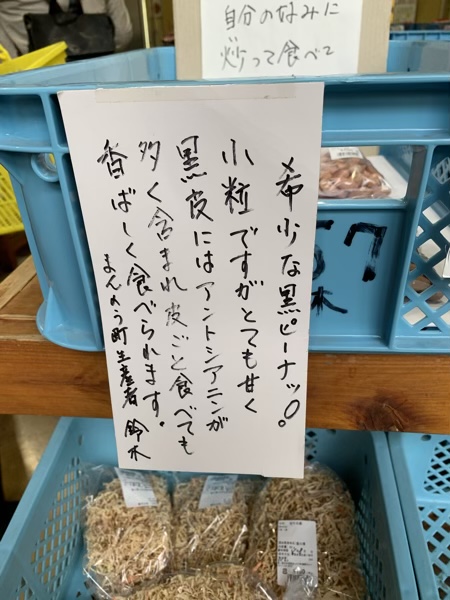 自分のなみに
炒って食べて
希少な黒ピーナッツ。
小粒ですがとても甘く
黒皮にはアントシアニンが
多く含まれ皮ごと食べても
香ばしく食べられます。
まんのう町生産者 鈴木
57
木